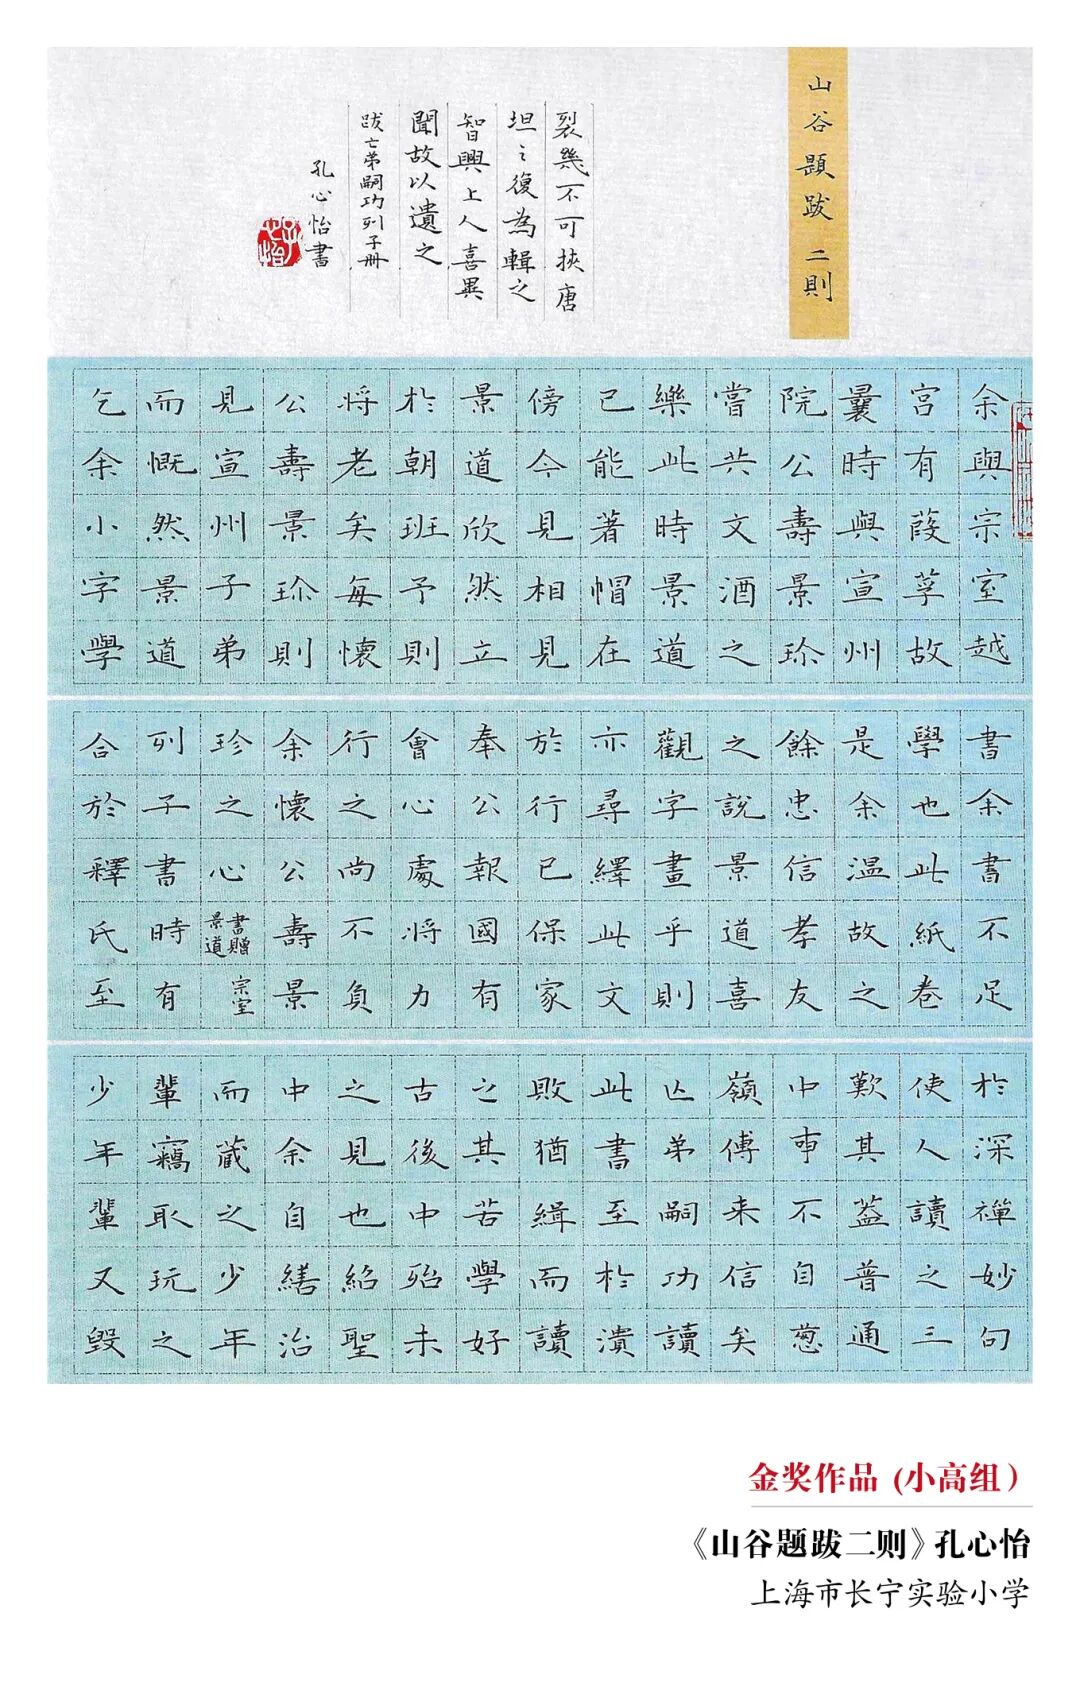 山谷題跋二則
余與宗室越
宮有葭莩故
曩時與宣州
院公壽景珎
嘗共文酒之
樂此時景道
已能著帽在
傍今見相見
景道欣然立
於朝班予則
将老矣每懷
公壽景珎則
見宣州子弟
而慨然景道
乞余小字學
書余書不足
學也此紙卷
是余温故之
餘忠信孝友
之說景道喜
觀字畫乎則
亦尋繹此文
於行已保家
奉公報國有
會心處将力
行之尚不負
余懷公壽景
珍之心書贈景道宗室
列子書時有
合於釋氏至
於深禪妙句
使人讀之三
歎其蓋普通
中事不自葱
嶺傳来信矣
亡弟嗣功讀
此書至於潰
敗猶緝而讀
之其苦學好
古後中殆未
之見也紹聖
中余自繕治
而藏之少年
輩竊取玩之
少年輩又毀
裂幾不可挾唐
坦之復為輯之
智興上人喜異
聞故以遺之
跋亡弟嗣功列子冊
孔心怡書
孔心怡
金奖作品 (小高组)
《山谷题跋二则》孔心怡
上海市长宁实验小学